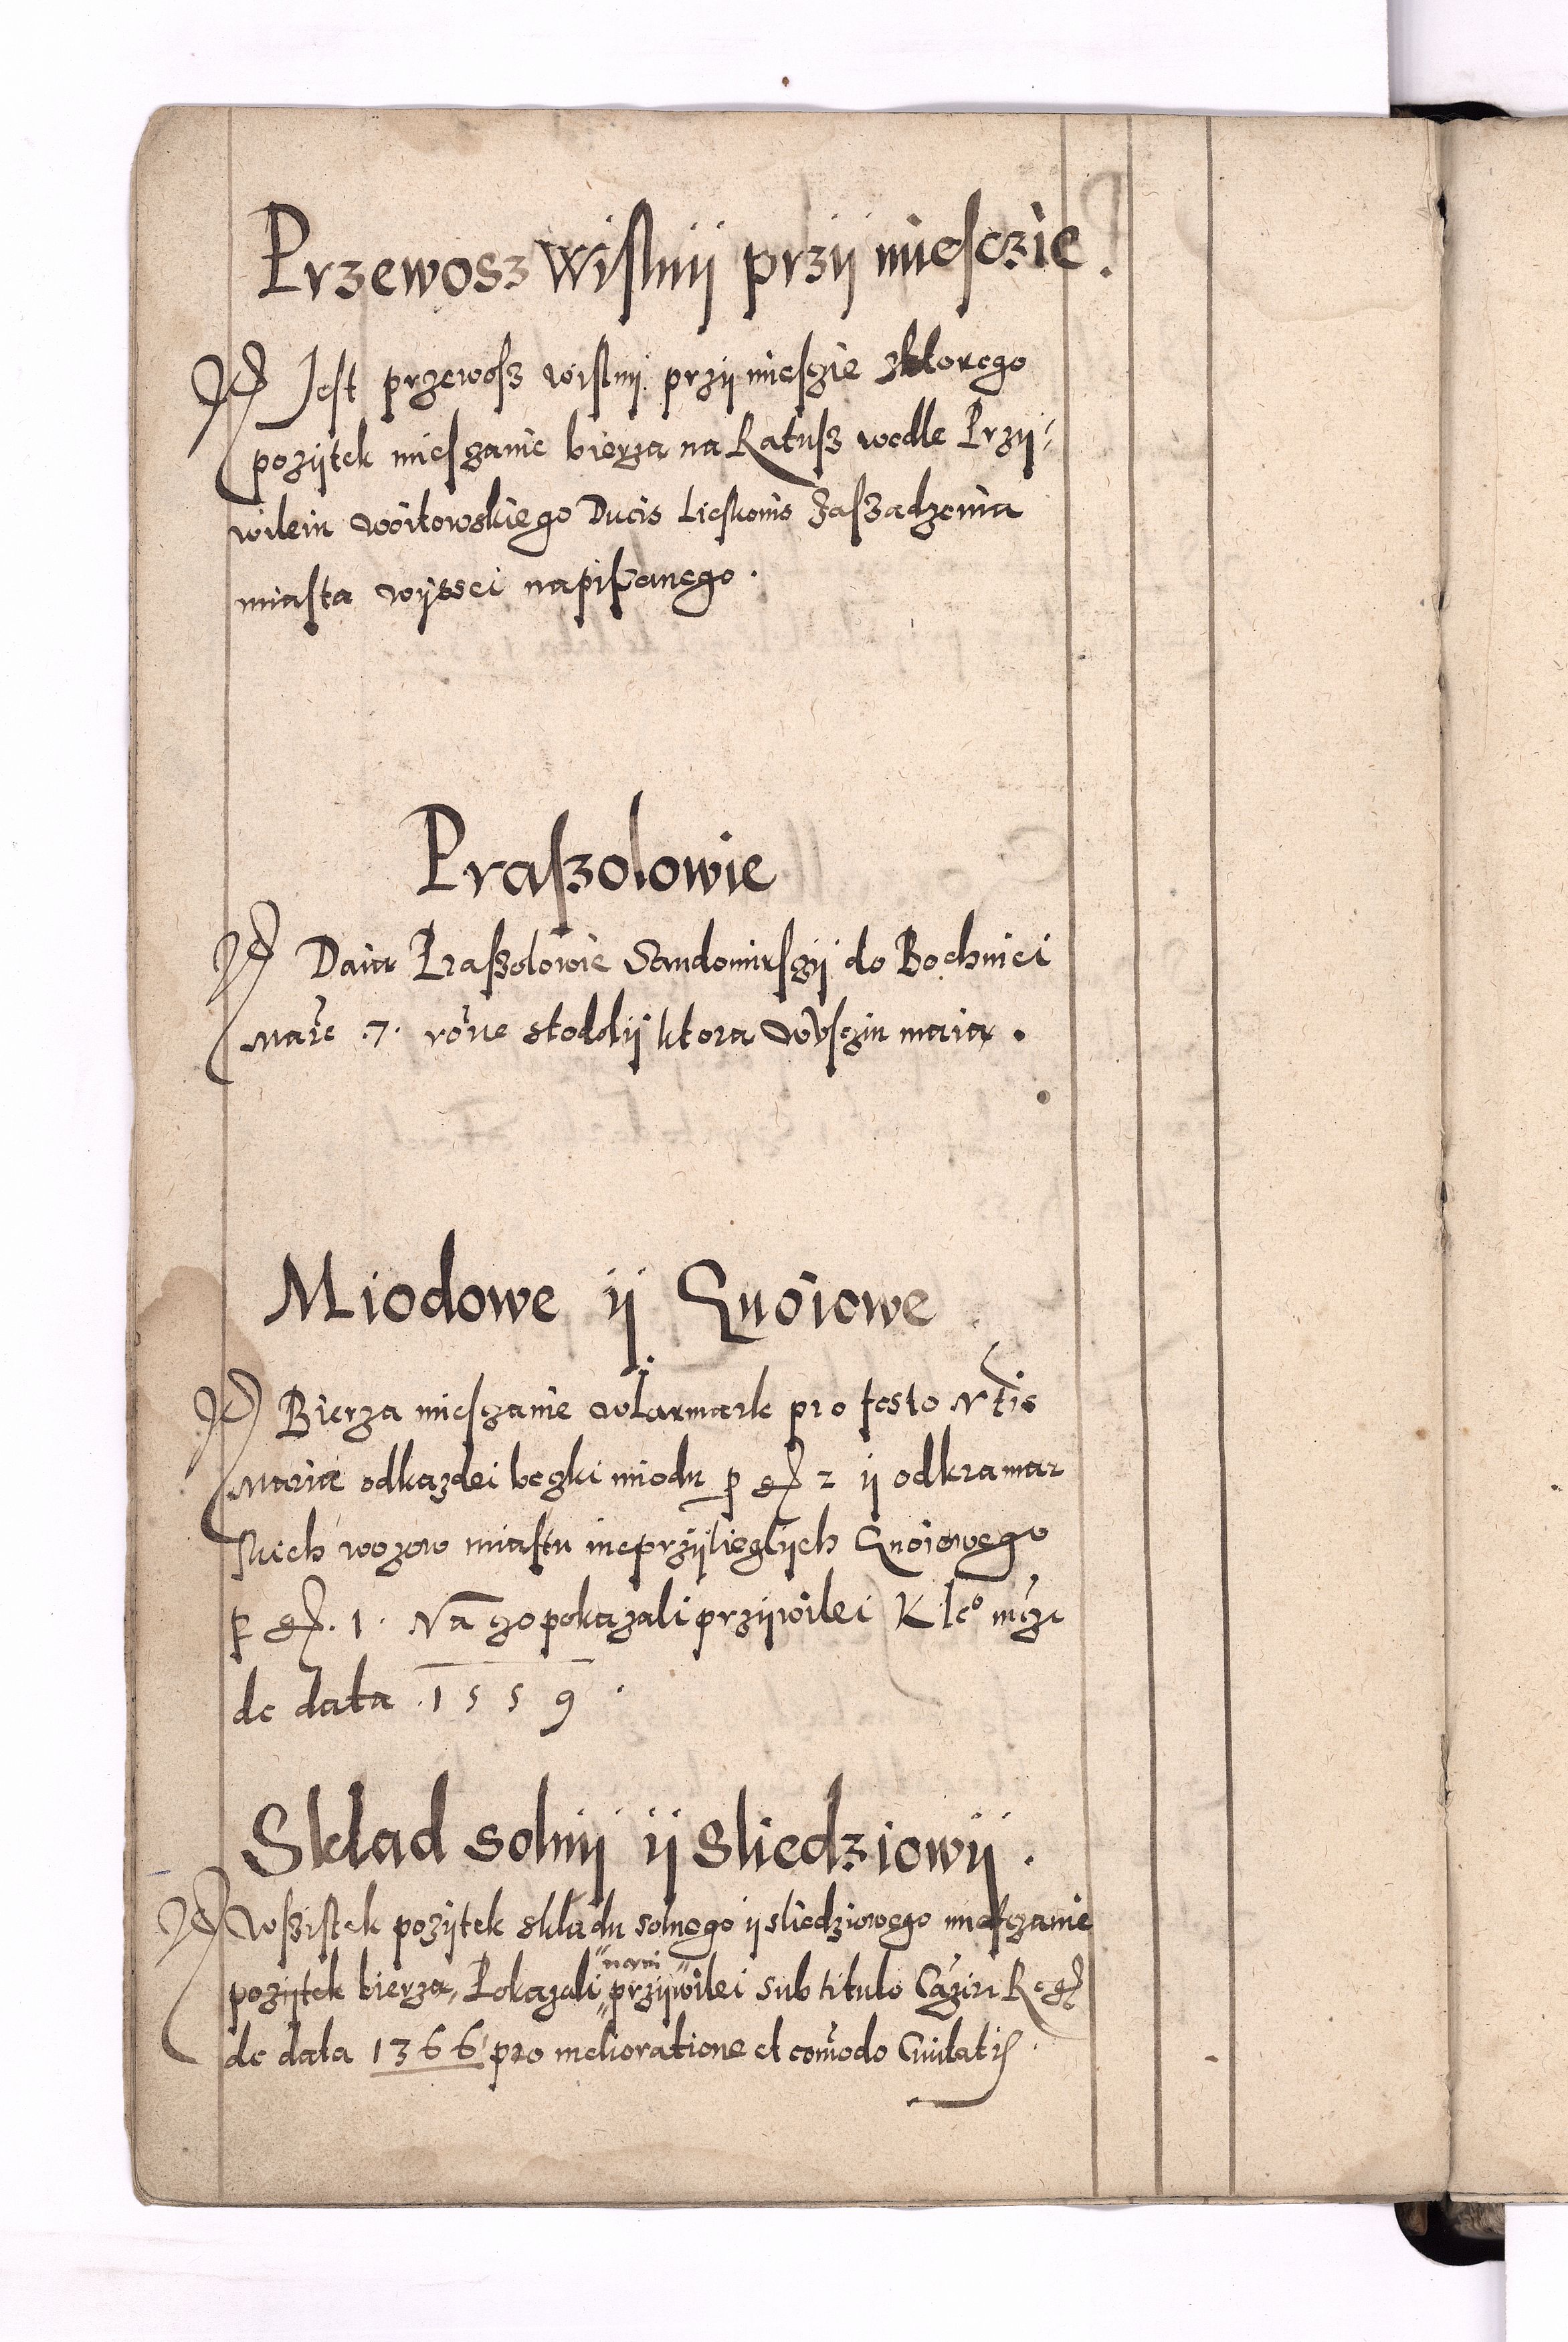 Przewosz wislnij przij miesczie.
Jest przewosz wislnij przij miesczie zktorego
pozijtek miesczanie bierza na Ratusz wedle Przij-
wileiu woitowskiego Ducis Lieskonis zaszadzenia
miasta wijssei napiszanego.
Praszolowie
Daia Praszolowie Sandomirsczij do Bochniei
Marc 7. rone stodolij ktora wVsczju maia.
Miodowe ij Gnoiowe
Bierza miesczanie wIarmark pro festo Ntis
Mariæ odkazdei beczki miodu p gr 2 ij odkramar
skich wozow miastu nieprzijlieglijch Gnoiowego
p gr. 1. Na czo pokazali przijwilei K Ieo mczi
de data 1559.
Skład solnij ij Sliedziowij.
Wszistek pozijtek składu solnego ij sliedziowego miesczanie
pozijtek bierza, Pokazali nani przijwilei sub titulo Caziri Regis
de data 1366 pro melioratione et comodo Civitatis